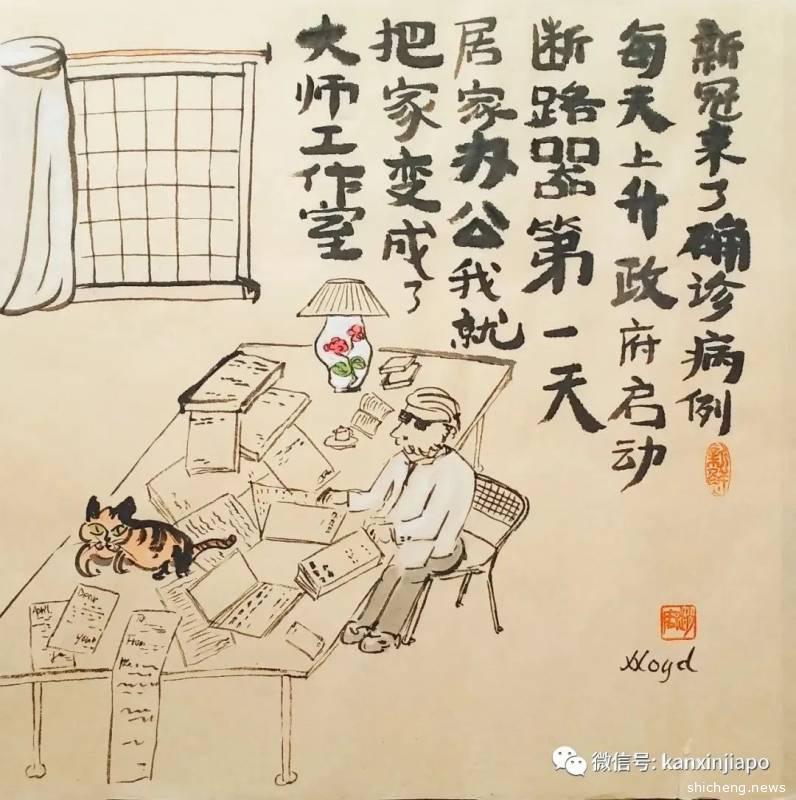 新冠来了确诊病例
每天上升政府启动
断路器第一天
居家办公我就
把家变成了
大师工作室
April
Dear
From
Lloyd
微信号: kanxinjiapo
shicheng.news